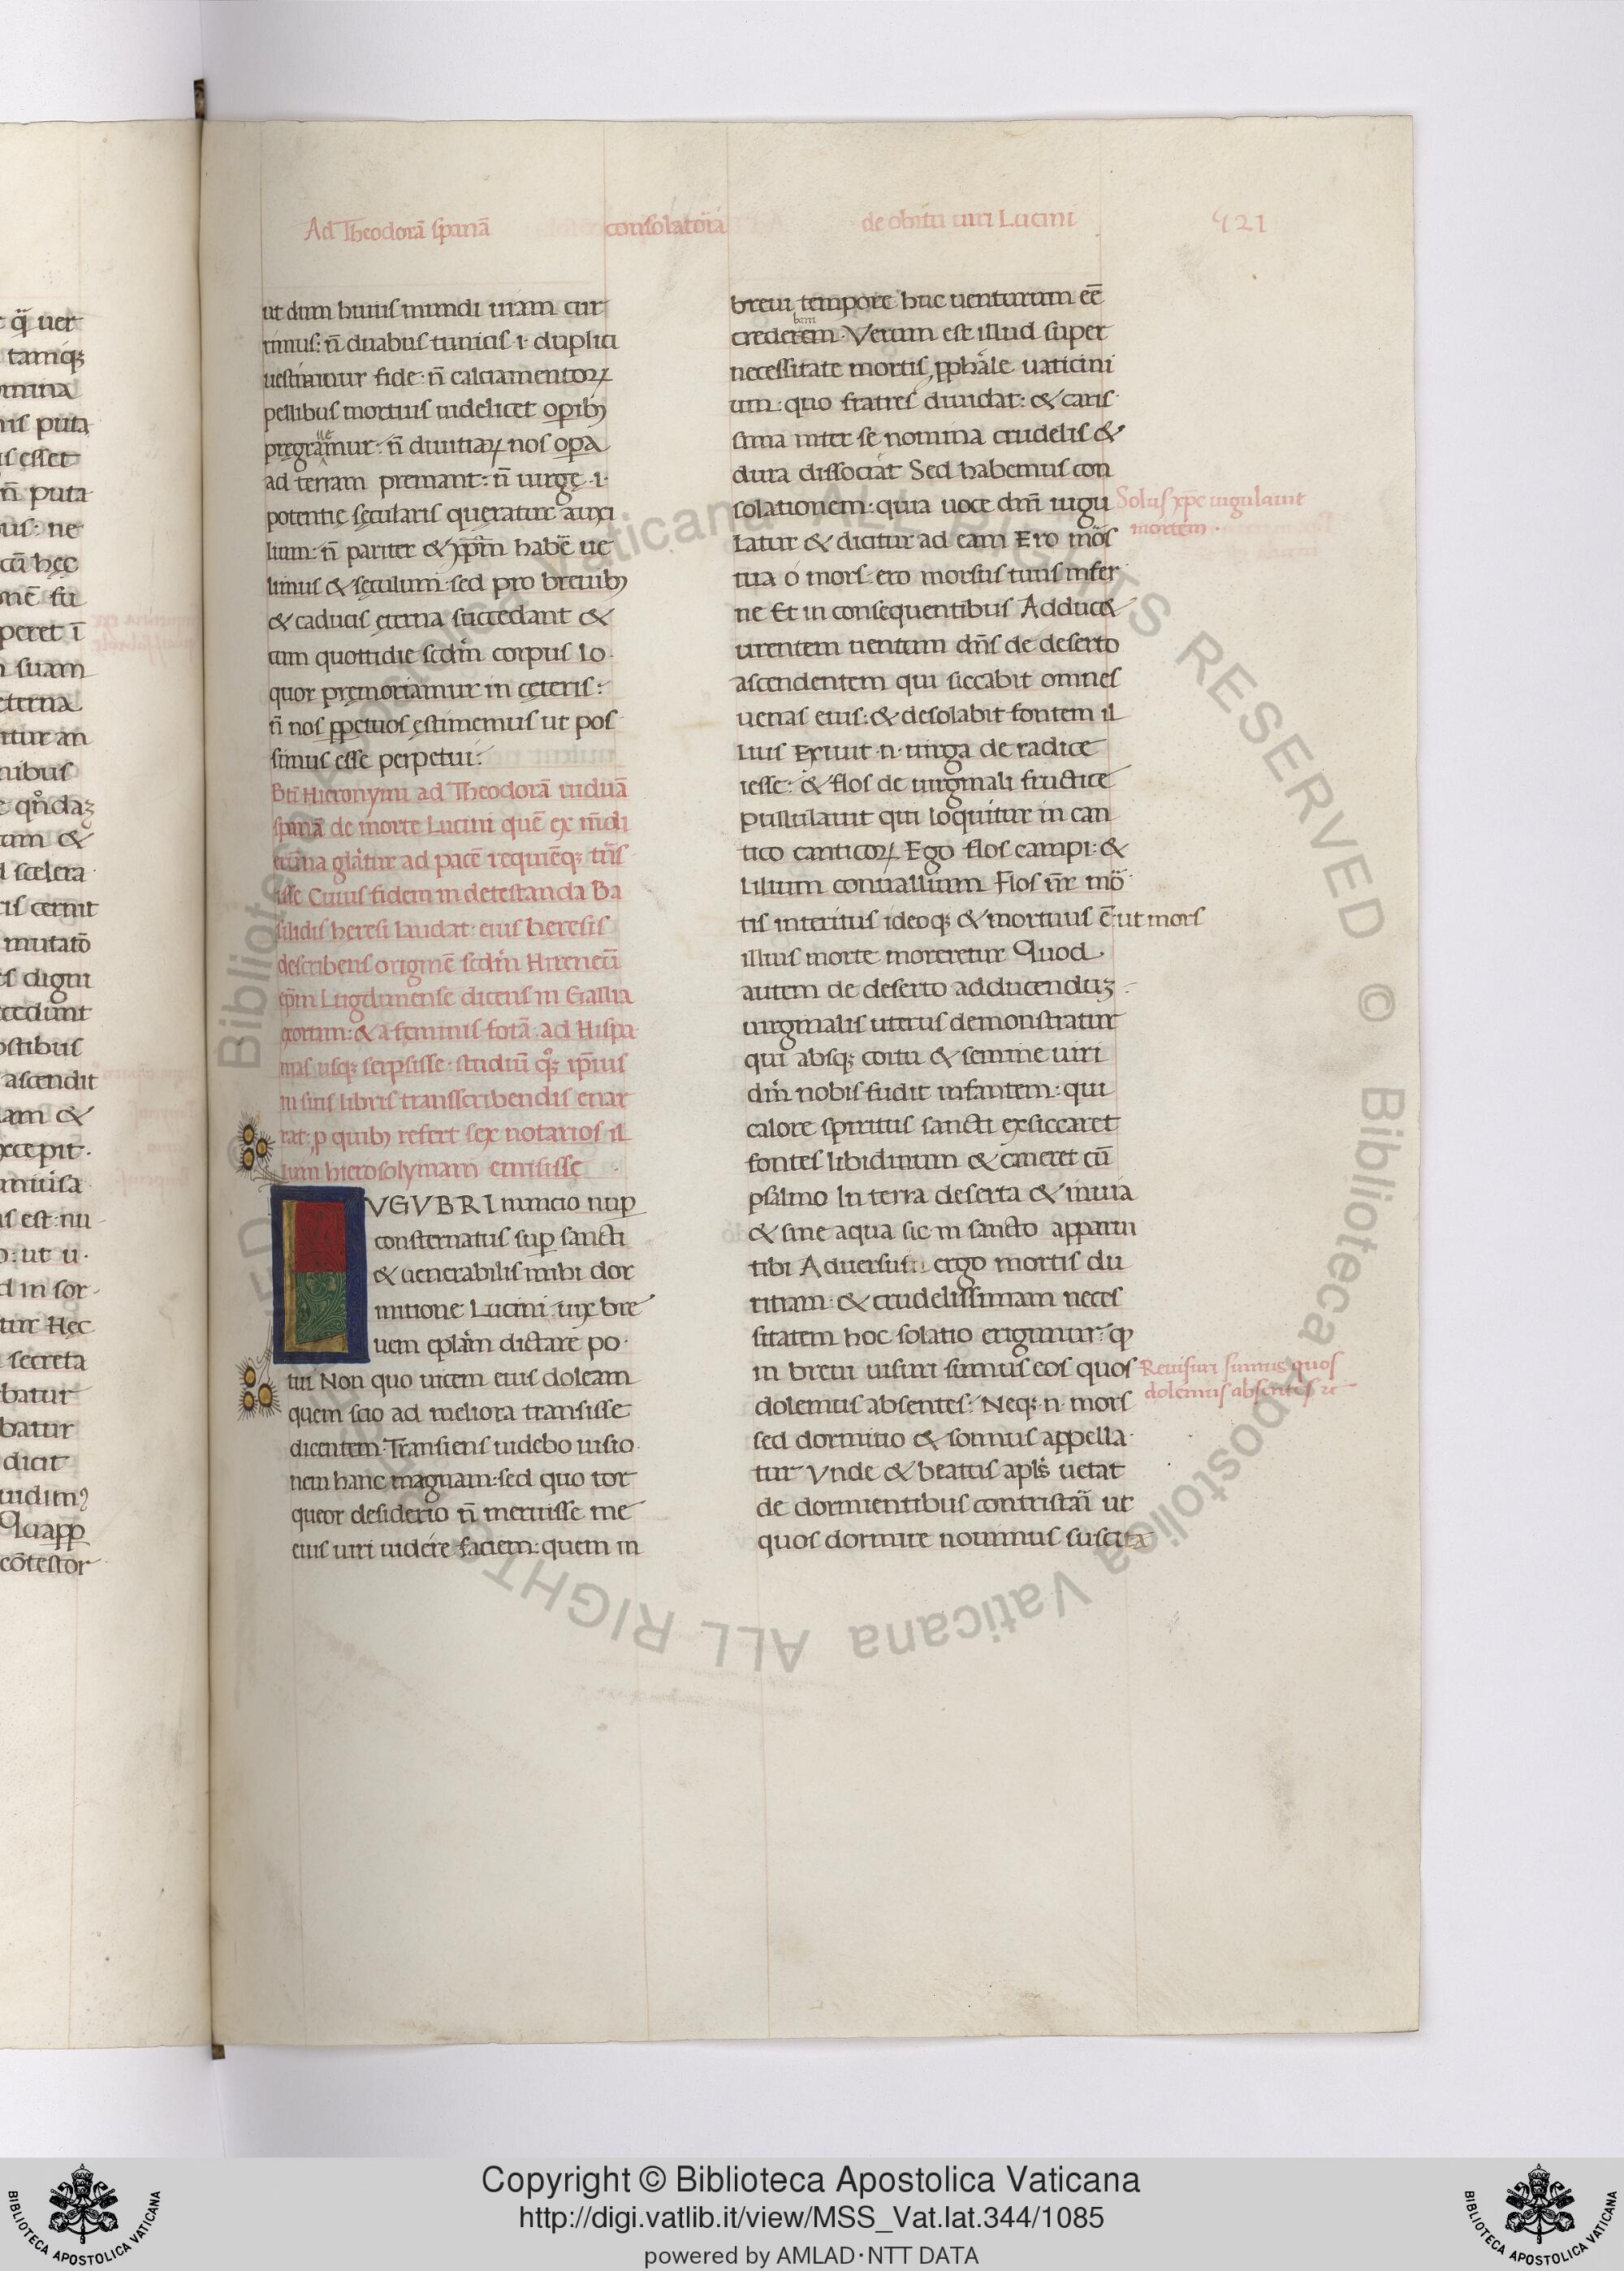 Ad Theodorā spanā consolatoīa de obitu uiri Lucini 421
ut dum huius mundi uiam cur
rimus: n̄ duabus tunicis ·i· duplici
uestiamur fide: n̄ calciamentoꝝ
pellibus mortuis uidelicet opib⁊
n̄ diuitiaꝝ nos opa
ad terram premant: n̄ uirgę ·i·
potentię sęcularis queratur auxi
lium: n̄ pariter & xp̄m habē ue
limus & sęculum: sed pro breuib⁊
& caducis ęterna succedant &
cum quottidie scdm̄ corpus lo
quor pręmoriamur in cęteris:
n̄ nos ꝑpetuos ęstimemus ut pos
simus esse perpetui:
Bt̄i Hieronymi ad Theodorā uiduā
spanā de morte Lucini quē ex
glat̄ur ad pacē requiēqꝫ trn̄s
isse Cuius fidem in detestanda Ba
silidis heresi laudat: eius heresis
describens originē scdm̄ Hireneū
ep̄m Lugdunense dicens in Gallia
exortum: & a feminis fotā: ad Hispa
nias usqꝫ serpsisse: studiū qͦꝫ ip̄ius
in suis libris transscribendis enar
rat: ꝑ quib⁊ refert sex notarios il
lum hierosolymam emisisse
LVGVBRI nuncio nuꝑ
consternatus suꝑ sancti
& uenerabilis mihi dor
mitione Lucini: uix bre
uem eplām dictare po·
tui Non quo uicem eius doleam
quem scio ad meliora transisse
dicentem Transiens uidebo uisio
nem hanc magnam: sed quo tor
queor desiderio n̄ meruisse me
eius uiri uidere faciem: quem in
breui tempore huc uenturum eē
bam
crederem· Verum est illud super
necessitate mortis ꝓphāle uaticini
um: quo fratres diuidat: & caris
sima inter se nomina crudelis &
dura dissociat Sed habemus con
solationem: quia uoce dnī iugu
latur & dicitur ad eam Ero mōs
tua o mors: ero morsus tuus infer
ne Et in consequentibus Adducet
urentem uentum dn̄s de deserto
ascendentem qui siccabit omnes
uenas eius: & desolabit fontem il
lius Exiuit ·n· uirga de radice
iesse: & flos de uirginali frutice
pullulauit qui loquitur in can
tico canticoꝝ Ego flos campi: &
lilium conuallium Flos nr̄ mō
tis interitus ideoqꝫ & mortuus ē: ut mors
illius morte moreretur Quod
autem de deserto adducenduꝫ
uirginalis uterus demonstratur
qui absqꝫ coitu & semine uiri
dm̄ nobis fudit infantem: qui
calore spiritus sancti exsiccaret
fontes libidinum & caneret cū
psalmo In terra deserta & inuia
& sine aqua sic in sancto apparui
tibi Aduersus ergo mortis du
ritiam: & crudelissimam neces
sitatem hoc solatio erigimur: ꝙ
in breui uisuri sumus eos quos
dolemus absentes: Neqꝫ ·n· mors
sed dormitio & somnus appella
tur Vnde & beatus apl̄s uetat
de dormientibus contristāi ut
quos dormire nouimus suscita
Solus xp̄c iugulauit
mortem·
Reuisuri sumus quos
dolemus absentes
Copyright © Biblioteca Apostolica Vaticana
http://digi.vatlib.it/view/MSS_Vat.lat.344/1085
powered by AMLAD·NTT DATA
BIBLIOTECA APOSTOLICA VATICANA
BIBLIOTECA APOSTOLICA VATICANA